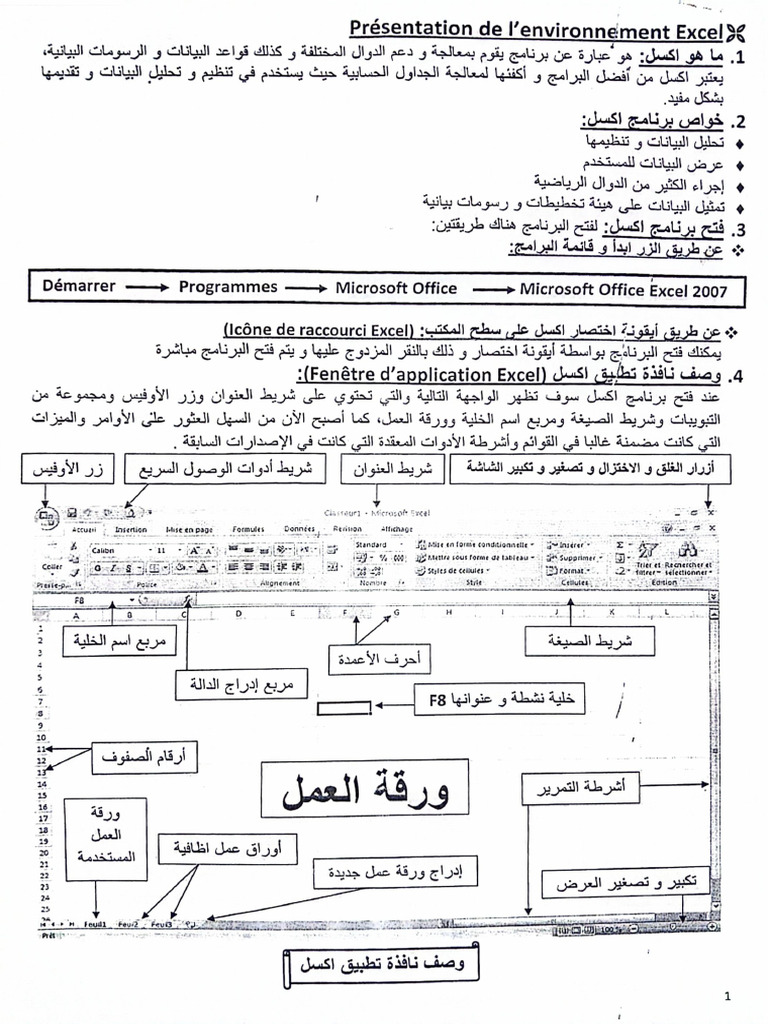 Présentation de l'environnement Excel
1. ما هو اكسل: هو عبارة عن برنامج يقوم بمعالجة و دعم الدوال المختلفة و كذلك قواعد البيانات و الرسومات البيانية،
يعتبر اكسل من أفضل البرامج و أكفئها لمعالجة الجداول الحسابية حيث يستخدم في تنظيم و تحليل البيانات و تقديمها
بشكل مفيد.
2. خواص برنامج اكسل:
♦ تحليل البيانات و تنظيمها
♦ عرض البيانات للمستخدم
♦ إجراء الكثير من الدوال الرياضية
♦ تمثيل البيانات على هيئة تخطيطات و رسومات بيانية
3. فتح برنامج اكسل: لفتح البرنامج هناك طريقتين:
❖ عن طريق الزر ابدأ و قائمة البرامج:
Démarrer → Programmes → Microsoft Office → Microsoft Office Excel 2007
❖ عن طريق أيقونة اختصار اكسل على سطح المكتب: (Icône de raccourci Excel)
يمكنك فتح البرنامج بواسطة أيقونة اختصار و ذلك بالنقر المزدوج عليها و يتم فتح البرنامج مباشرة
4. وصف نافذة تطبيق اكسل (Fenêtre d'application Excel):
عند فتح برنامج اكسل سوف تظهر الواجهة التالية والتي تحتوي على شريط العنوان وزر الأوفيس ومجموعة من
التبويبات وشريط الصيغة ومربع اسم الخلية وورقة العمل، كما أصبح الآن من السهل العثور على الأوامر والميزات
التي كانت مضمنة غالبا في القوائم وأشرطة الأدوات المعقدة التي كانت في الإصدارات السابقة .
أزرار الغلق و الاختزال و تصغير و تكبير الشاشة
شريط العنوان
شريط أدوات الوصول السريع
زر الأوفيس
Classeur1 - Microsoft Excel
Accueil Insertion Mise en page Formules Données Révision Affichage
Calibri 11 Standard Mise en forme conditionnelle Insérer Σ
Coller G I S % 000 Mettre sous forme de tableau Supprimer Trier et Rechercher et
Styles de cellules Format filtrer sélectionner
Presse-p... Police Alignement Nombre Style Cellules Édition
F8 fx
A B C D E F G H I J K L
1
2
3
4
5
6
7
8
9
10
11
12
13
14
15
16
17
18
19
20
21
22
23
24
25
مربع اسم الخلية
مربع إدراج الدالة
أحرف الأعمدة
شريط الصيغة
خلية نشطة و عنوانها F8
أرقام الصفوف
ورقة العمل
أشرطة التمرير
ورقة
العمل
المستخدمة
أوراق عمل اظافية
إدراج ورقة عمل جديدة
تكبير و تصغير العرض
Feuil1 Feuil2 Feuil3
Prêt 100 %
وصف نافذة تطبيق اكسل
1